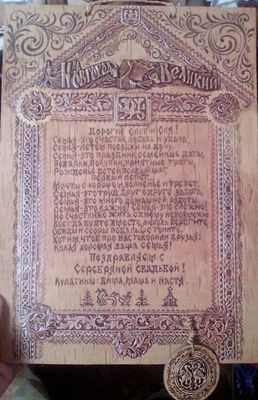 Новгород Великий
Дорогие Олег и Юля!
Семья - это счастье, любовь и удача,
Семья - это летом поездки на дачу.
Семья - это праздник, семейные даты,
Подарки, покупки, приятные траты,
Рожденье детей, первый шаг,
первый лепет,
Мечты о хорошем, волненье и трепет.
Семья - это труд, друг о друге забота,
Семья - это много домашней работы.
Семья - это важно! Семья - это сложно!
Но счастливо жить одному невозможно!
Всегда будьте вместе, любовь берегите,
Обиды и ссоры подальше гоните,
Хотим, чтоб про нас говорили друзья:
Какая хорошая ваша семья!
Поздравляем с
Серебряной свадьбой!
Кулагины: Яша, Маша и Настя.